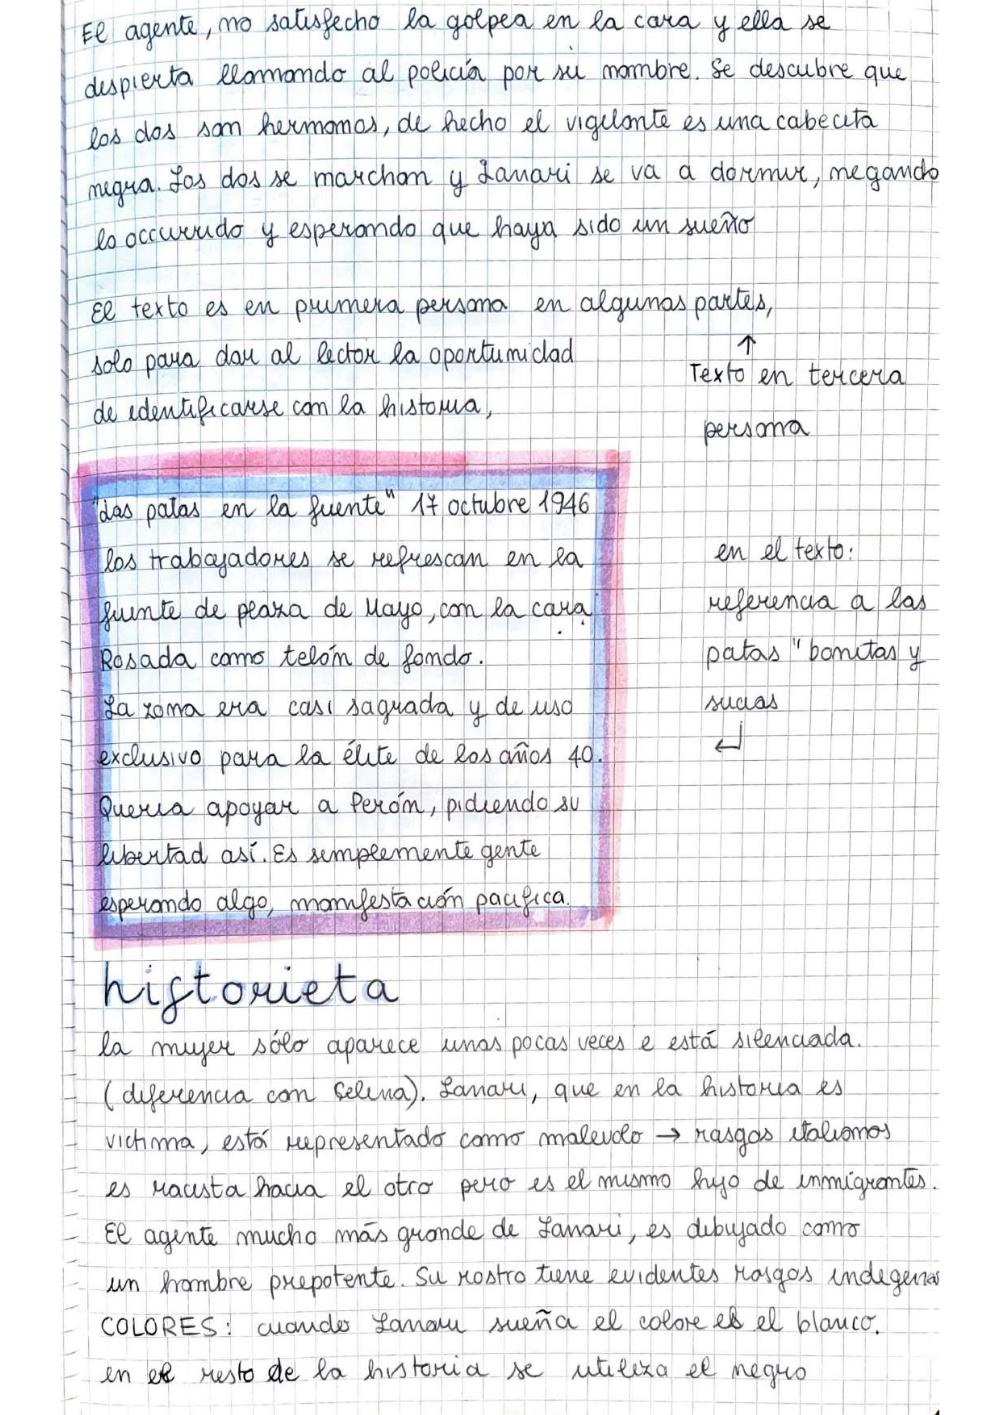 El agente, no satisfecho la golpea en la cara y ella se
despierta llamando al policía por su nombre. Se descubre que
los dos son hermanos, de hecho el vigilante es una cabecita
negra. Los dos se marchan y Lanari se va a dormir, negando
lo occurrido y esperando que haya sido un sueño
El texto es en primera persona en algunas partes,
solo para dar al lector la oportunidad
de identificarse con la historia,
↑
Texto en tercera
persona
"Las patas en la fuente" 17 octubre 1946
los trabajadores se refrescan en la
fuente de plaza de Mayo, con la cara
Rosada como telón de fondo.
La zona era casi sagrada y de uso
exclusivo para la élite de los años 40.
Queria apoyar a Perón, pidiendo su
libertad así. Es semplemente gente
esperando algo, manifestación pacifica.
en el texto:
referencia a las
patas "bonitas y
sucias
↵
historieta
la mujer sólo aparece unas pocas veces e está silenciada.
(diferencia con Selina). Lanari, que en la historia es
victima, está representado como malevolo → rasgos italianos
es racista hacia el otro pero es el mismo hijo de inmigrantes.
El agente mucho más grande de Lanari, es dibujado como
un hombre prepotente. Su rostro tiene evidentes rasgos indegenas
COLORES: cuando Lanari sueña el colore es el blanco.
en el resto de la historia se utiliza el negro